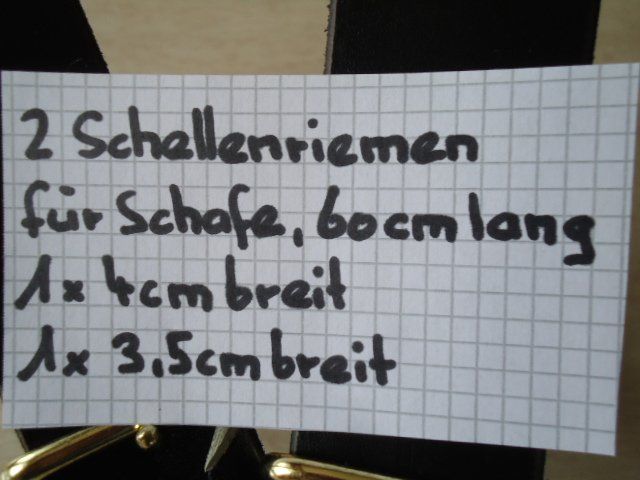 2 Schellenriemen
für Schafe, 60cm lang
1x 4cm breit
1x 3,5cm breit